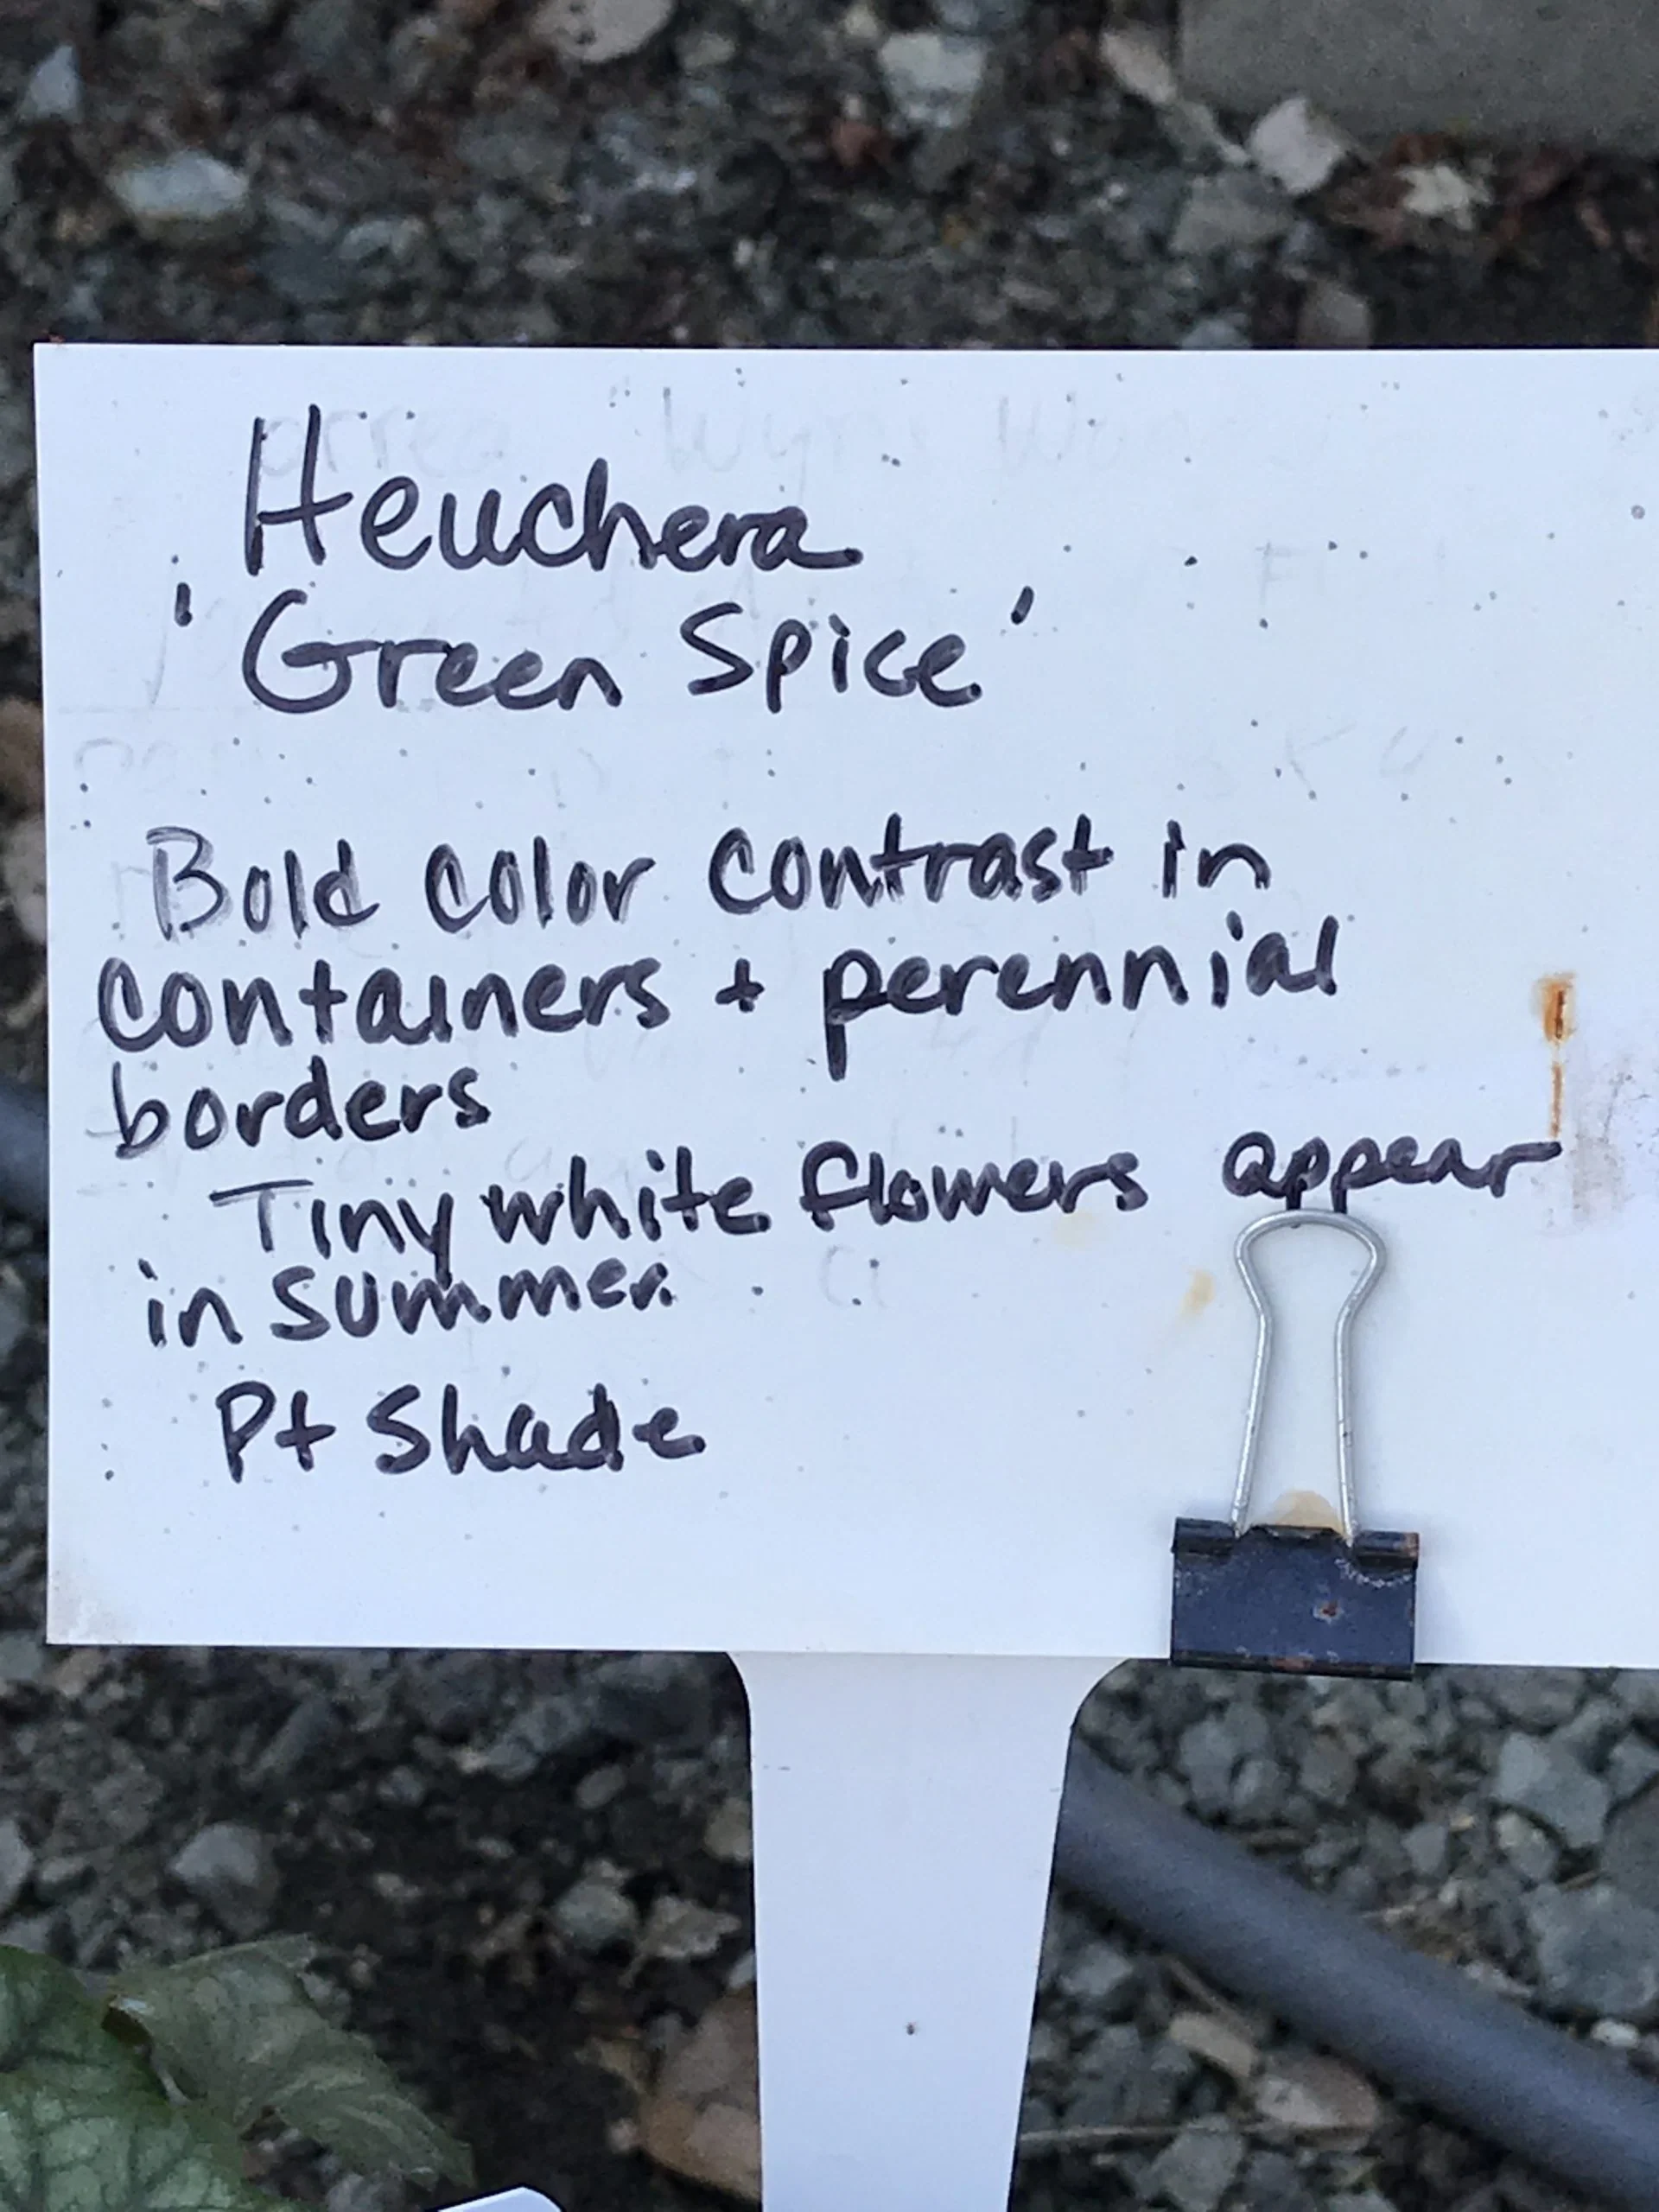 Heuchera
'Green Spice'
Bold color contrast in
containers + perennial
borders
Tiny white flowers appear
in summer.
Pt Shade